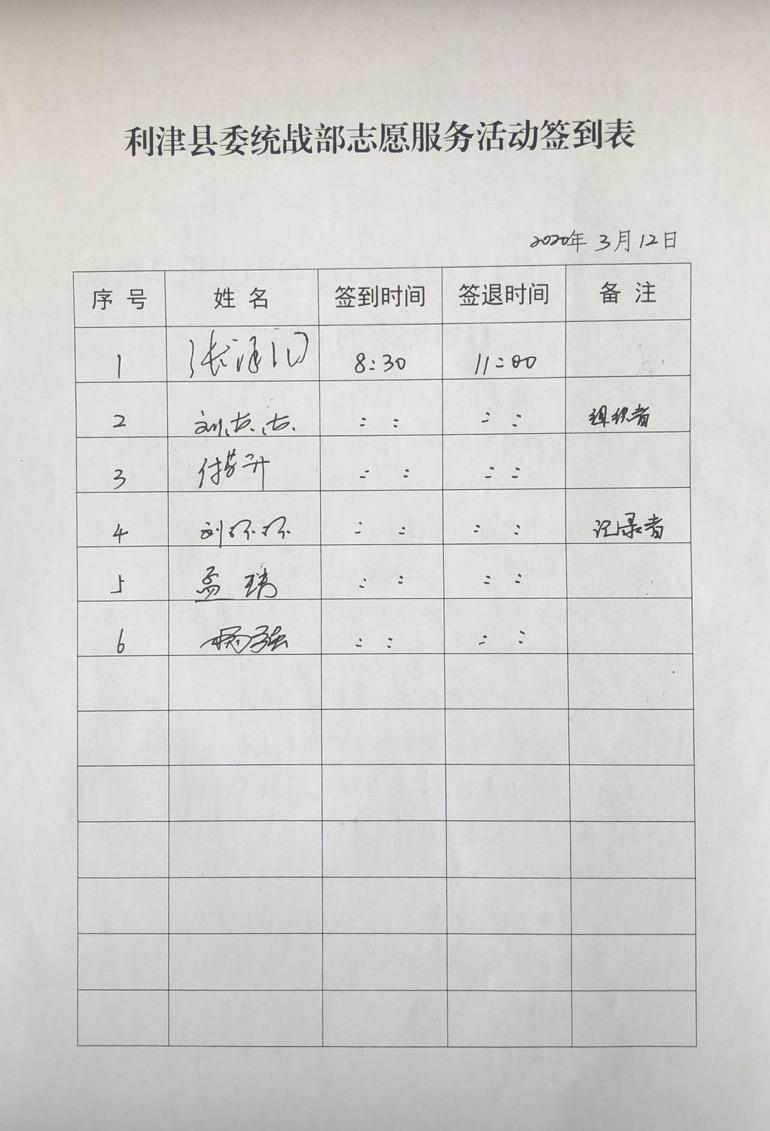 利津县委统战部志愿服务活动签到表
2020年 3月12日
序号 姓名 签到时间 签退时间 备注
1 张 8:30 11:00
2 刘洁洁 : : : : 组织者
3 付 升 : : : :
4 刘环环 : : : : 记录者
5 孟 : : : :
6 强 : : : :